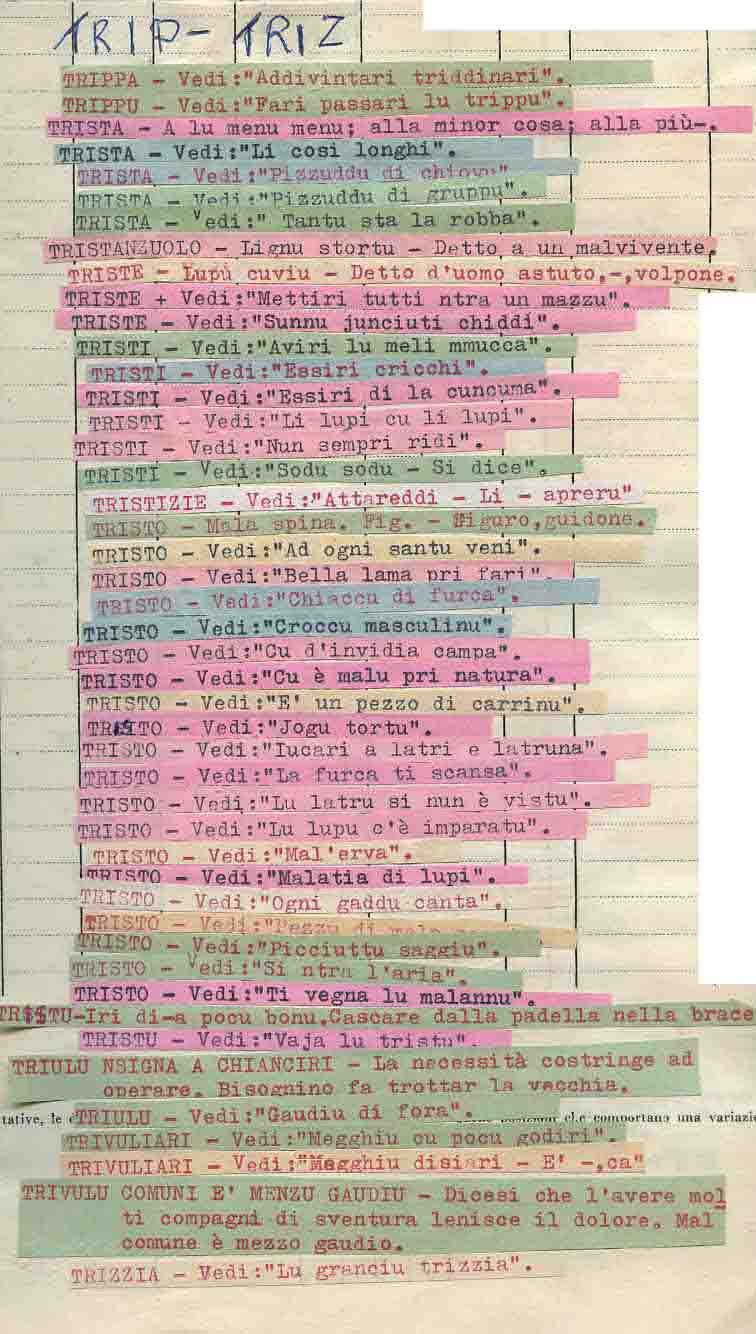 TRIP- TRIZ
TRIPPA - Vedi:"Addivintari triddinari".
TRIPPU - Vedi:"Fari passari lu trippu".
TRISTA - A lu menu menu; alla minor cosa; alla più-.
TRISTA - Vedi:"Li cosi longhi".
TRISTA - Vedi:"Pizzuddu di chiovu"
TRISTA - Vedi:"Pizzuddu di gruppu".
TRISTA - Vedi:" Tantu sta la robba".
TRISTANZUOLO - Lignu stortu - Detto a un malvivente.
TRISTE - Lupù cuviu - Detto d'uomo astuto.-,volpone.
TRISTE + Vedi:"Mettiri tutti ntra un mazzu".
TRISTE - Vedi:"Sunnu junciuti chiddi".
TRISTI - Vedi:"Aviri lu meli mmucca".
TRISTI - Vedi:"Essiri cricchi".
TRISTI - Vedi:"Essiri di la cuncuma".
TRISTI - Vedi:"Li lupi cu li lupi".
TRISTI - Vedi:"Nun sempri ridi".
TRISTI - Vedi:"Sodu sodu - Si dice".
TRISTIZIE - Vedi:"Attareddi - Li - apreru"
TRISTO - Mala spina. Fig. - Figuro,guidone.
TRISTO - Vedi:"Ad ogni santu veni".
TRISTO - Vedi:"Bella lama pri fari".
TRISTO - Vedi:"Chiaccu di furca".
TRISTO - Vedi:"Croccu masculinu".
TRISTO - Vedi:"Cu d'invidia campa".
TRISTO - Vedi:"Cu è malu pri natura".
TRISTO - Vedi:"E' un pezzo di carrinu".
TRISTO - Vedi:"Jogu tortu".
TRISTO - Vedi:"Iucari a latri e latruna".
TRISTO - Vedi:"La furca ti scansa".
TRISTO - Vedi:"Lu latru si nun è vistu".
TRISTO - Vedi:"Lu lupu c'è imparatu".
TRISTO - Vedi:"Mal'erva".
TRISTO - Vedi:"Malatia di lupi".
TRISTO - Vedi:"Ogni gaddu canta".
TRISTO - Vedi:"Pezzu di
TRISTO - Vedi:"Picciuttu saggiu".
TRISTO - Vedi:"Si ntra l'aria".
TRISTO - Vedi:"Ti vegna lu malannu".
TR$$TU-Iri di-a pocu bonu.Cascare dalla padella nella brace
TRISTU - Vedi:"Vaja lu tristu".
TRIULU NSIGNA A CHIANCIRI - La necessità costringe ad
operare. Bisognino fa trottar la vecchia.
tative, le TRIULU - Vedi:"Gaudiu di fora". che comportano una variazio
TRIVULIARI - Vedi:"Megghiu cu pocu godiri".
TRIVULIARI - Vedi:"Megghiu disiari - E' -,ca"
TRIVULU COMUNI E' MENZU GAUDIU - Dicesi che l'avere mol
ti compagni di sventura lenisce il dolore. Mal
comune è mezzo gaudio.
TRIZZIA - Vedi:"Lu granciu trizzia".